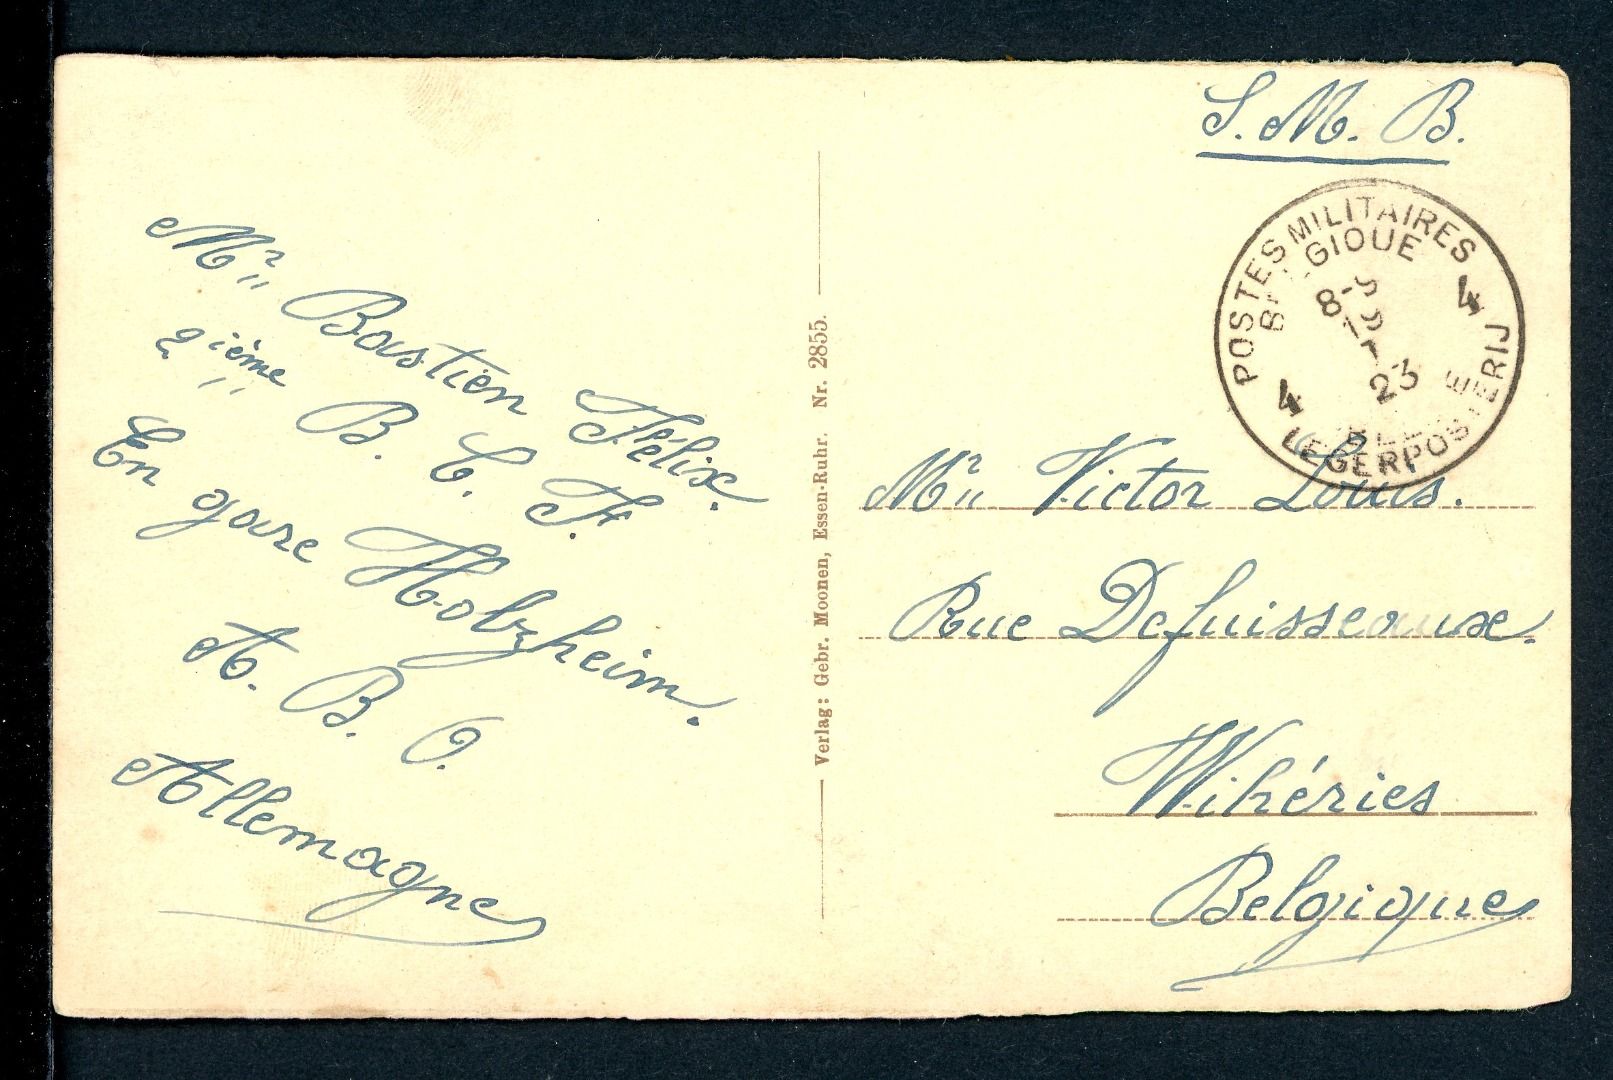 S. M. B.
POSTES MILITAIRES
4
23
4
LEGERPOSTERIJ
Mr Bastien Félix.
2ième B. C. F.
En gare Holzheim.
A. B. O.
Allemagne
Verlag: Gebr. Moonen, Essen-Ruhr. Nr. 2855.
Mr Victor Louis.
Rue Defuisseaux.
Wihéries
Belgique